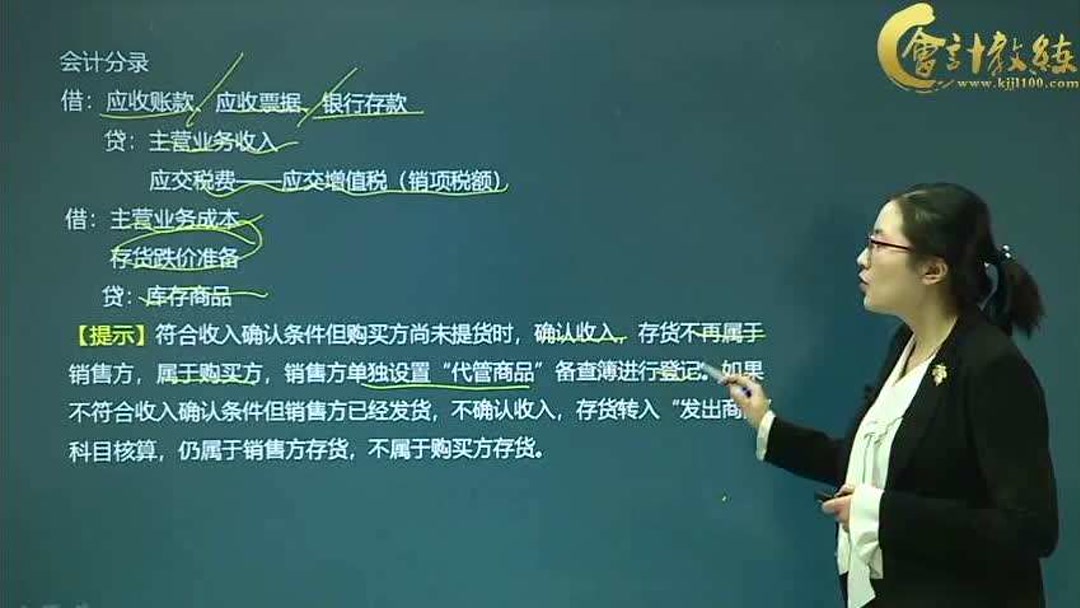 會計教練
www.kjjl100.com
会计分录
借：应收账款、应收票据、银行存款
贷：主营业务收入
应交税费——应交增值税（销项税额）
借：主营业务成本
存货跌价准备
贷：库存商品
【提示】符合收入确认条件但购买方尚未提货时，确认收入，存货不再属于
销售方，属于购买方，销售方单独设置“代管商品”备查簿进行登记。如果
不符合收入确认条件但销售方已经发货，不确认收入，存货转入“发出商
科目核算，仍属于销售方存货，不属于购买方存货。